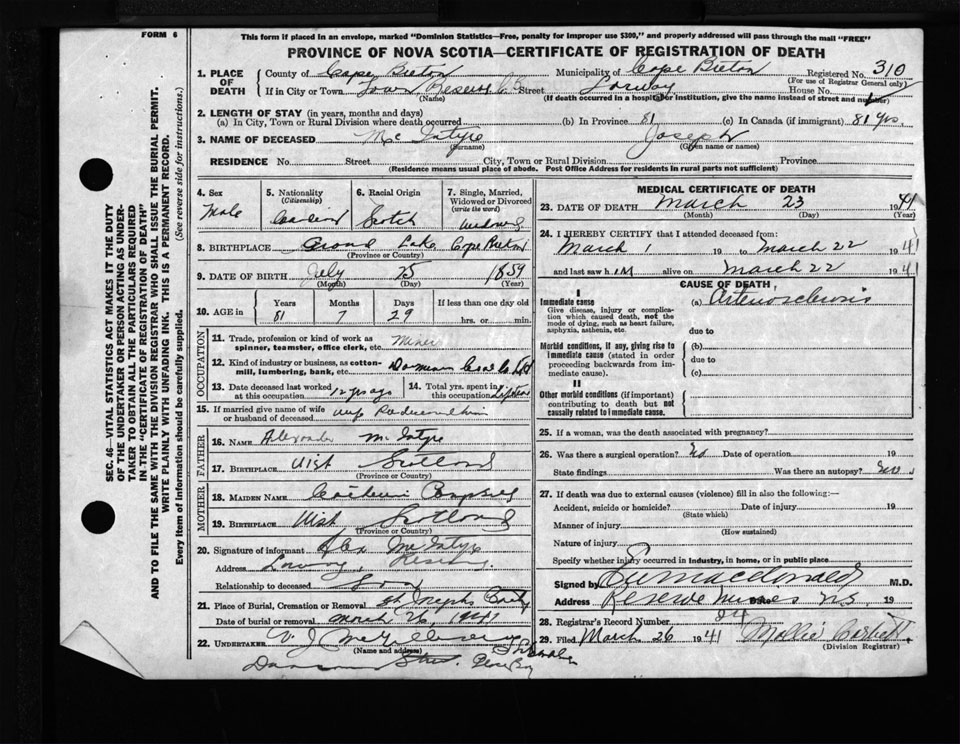 FORM 6
This form if placed in an envelope, marked "Dominion Statistics—Free, penalty for improper use $300," and properly addressed will pass through the mail "FREE"
PROVINCE OF NOVA SCOTIA—CERTIFICATE OF REGISTRATION OF DEATH
SEC. 46—VITAL STATISTICS ACT MAKES IT THE DUTY
OF THE UNDERTAKER OR PERSON ACTING AS UNDER-
TAKER TO OBTAIN ALL THE PARTICULARS REQUIRED
IN THE "CERTIFICATE OF REGISTRATION OF DEATH"
AND TO FILE THE SAME WITH THE DIVISION REGISTRAR WHO SHALL ISSUE THE BURIAL PERMIT.
WRITE PLAINLY WITH UNFADING INK. THIS IS A PERMANENT RECORD.
Every item of information should be carefully supplied. (See reverse side for instructions.)
1. PLACE OF DEATH
County of Cape Breton Municipality of Cape Breton Registered No. 310
(For use of Registrar General only)
If in City or Town Reserve C.B. Street Lorway House No.
(Name) (If death occurred in a hospital or institution, give the name instead of street and number)
2. LENGTH OF STAY (in years, months and days)
(a) In City, Town or Rural Division where death occurred (b) In Province 81 (c) In Canada (if immigrant) 81 yrs.
3. NAME OF DECEASED McIntyre Joseph
(Surname) (Given name or names)
RESIDENCE No. Street City, Town or Rural Division Province
(Residence means usual place of abode. Post Office Address for residents in rural parts not sufficient)
4. Sex
Male
5. Nationality
(Citizenship)
Canadian
6. Racial Origin
Scotch
7. Single, Married,
Widowed or Divorced
(write the word)
Widowed
8. BIRTHPLACE Grand Lake Cape Breton
(Province or Country)
9. DATE OF BIRTH July 25 1859
(Month) (Day) (Year)
10. AGE in Years Months Days If less than one day old
81 7 29 hrs. or min.
OCCUPATION
11. Trade, profession or kind of work as
spinner, teamster, office clerk, etc. Miner
12. Kind of industry or business, as cotton-
mill, lumbering, bank, etc. Dominion Coal Co Ltd
13. Date deceased last worked
at this occupation 12 yrs ago
14. Total yrs. spent in
this occupation Lifetime
15. If married give name of wife
or husband of deceased
FATHER
16. NAME Alexander McIntyre
17. BIRTHPLACE Uist Scotland
(Province or Country)
MOTHER
18. MAIDEN NAME Catherine Campbell
19. BIRTHPLACE Uist Scotland
(Province or Country)
20. Signature of informant Alex McIntyre
Address Lorway, Reserve.
Relationship to deceased Son
21. Place of Burial, Cremation or Removal St Joseph's
Date of burial or removal March 26, 1941
22. UNDERTAKER V. J. McGillivray
(Name and address)
Glace Bay
MEDICAL CERTIFICATE OF DEATH
23. DATE OF DEATH March 23 1941
(Month) (Day) (Year)
24. I HEREBY CERTIFY that I attended deceased from:
March 1 19 to March 22 1941
and last saw him alive on March 22 1941
CAUSE OF DEATH
I
Immediate cause (a) Arteriosclerosis
Give disease, injury or complica-
tion which caused death, not the
mode of dying, such as heart failure,
asphyxia, asthenia, etc.
due to
Morbid conditions, if any, giving rise to
immediate cause (stated in order
proceeding backwards from im-
mediate cause).
(b)
due to
(c)
II
Other morbid conditions (if important)
contributing to death but not
causally related to immediate cause.
25. If a woman, was the death associated with pregnancy?
26. Was there a surgical operation? No Date of operation 19
State findings Was there an autopsy? No
27. If death was due to external causes (violence) fill in also the following:—
Accident, suicide or homicide? Date of injury 19
(State which)
Manner of injury
(How sustained)
Nature of injury
Specify whether injury occurred in industry, in home, or in public place
Signed by MacDonald M.D.
Address Reserve Mines N.S. Date 19
28. Registrar's Record Number 24
29. Filed March 26 1941 Mollie Corbett
(Division Registrar)